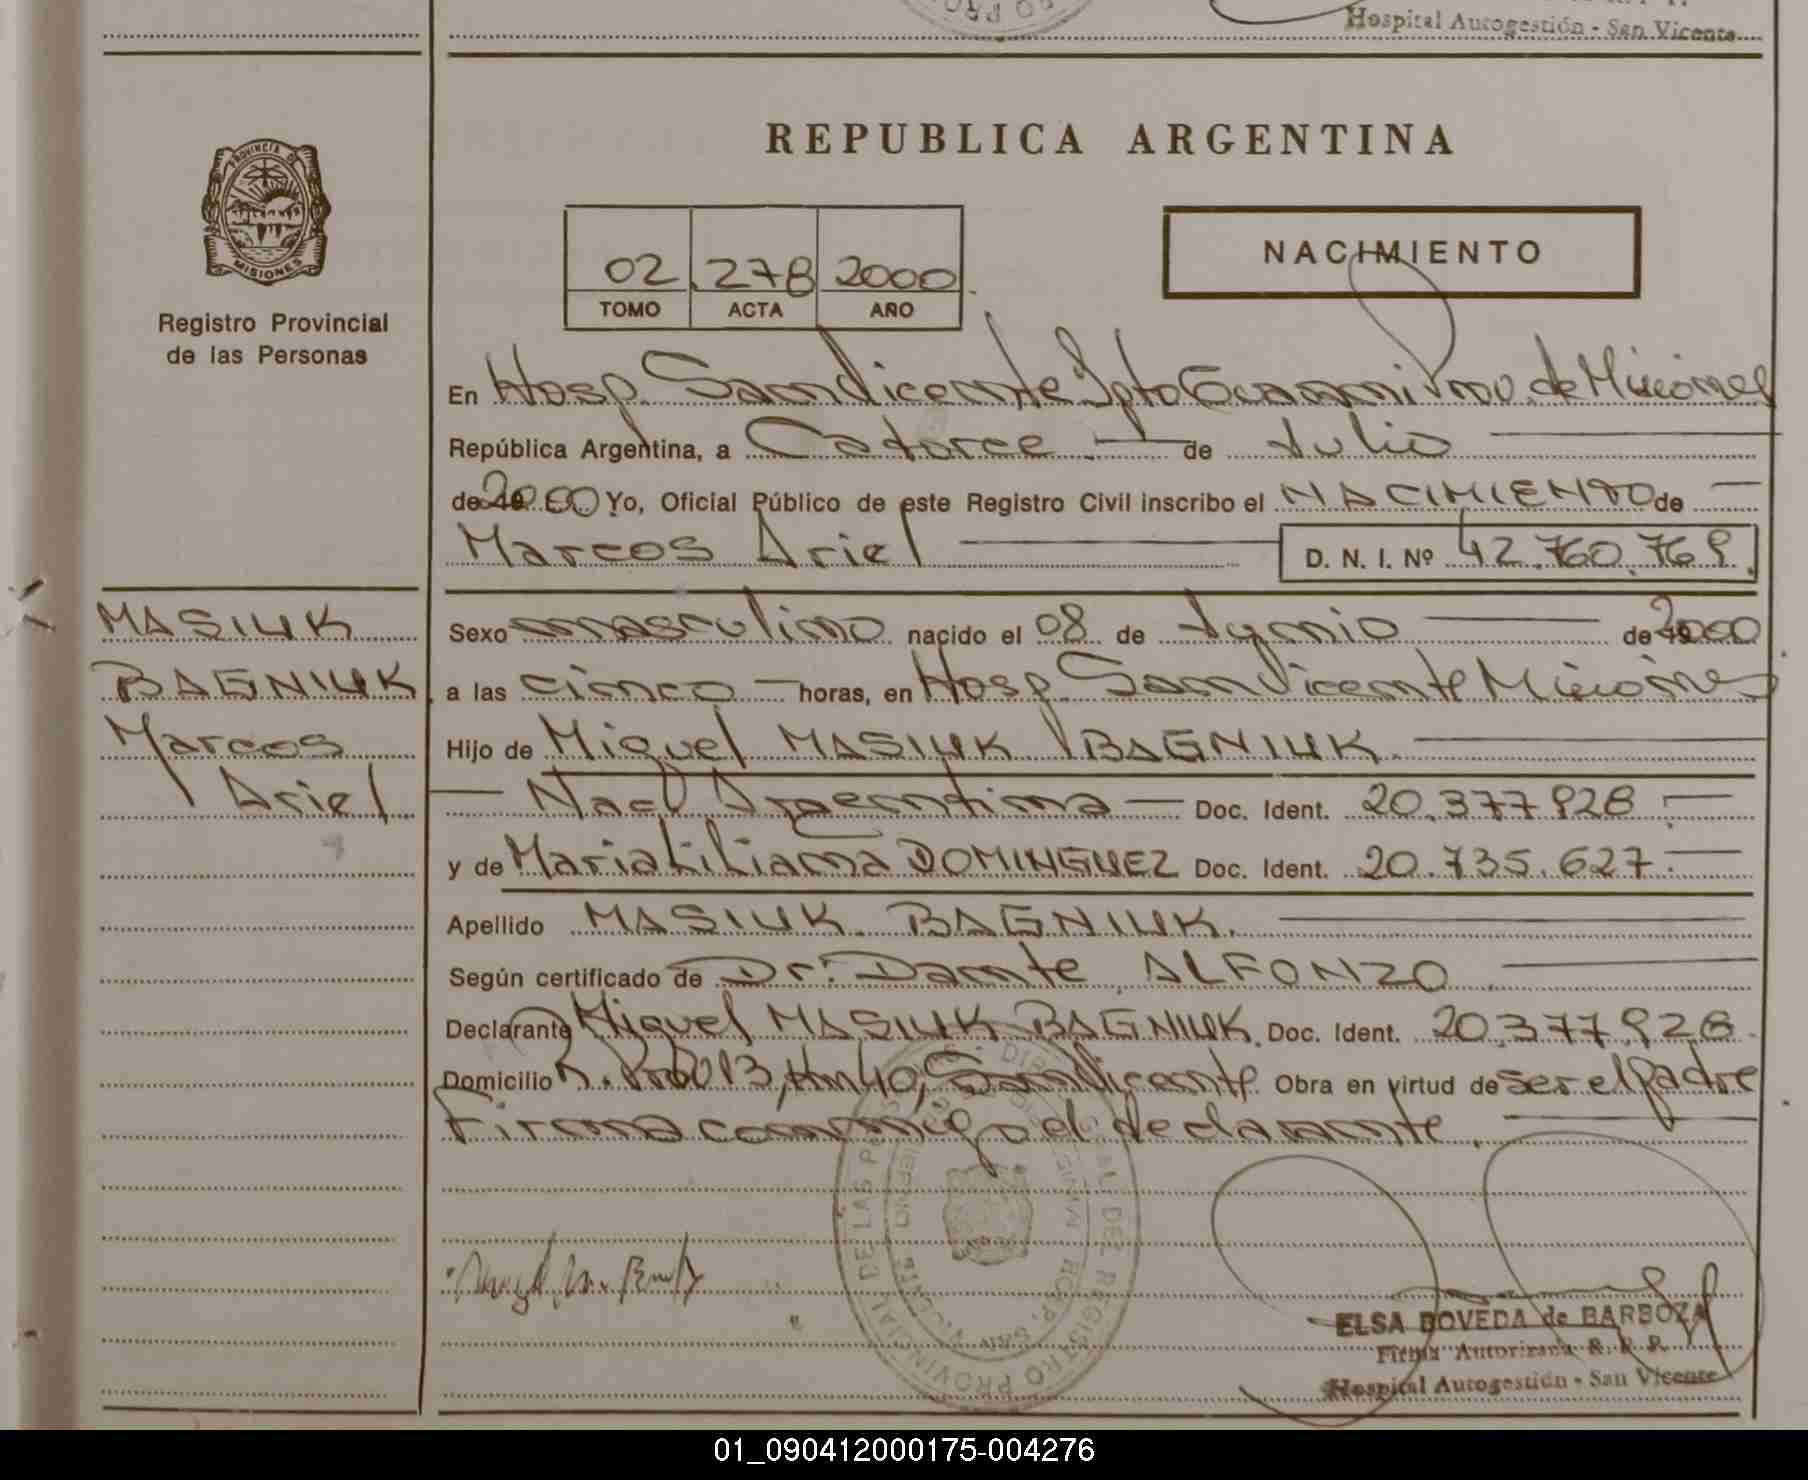 Hospital Autogestión - San Vicente
PROVINCIA DE
MISIONES
Registro Provincial
de las Personas
REPUBLICA ARGENTINA
02 278 2000
TOMO ACTA AÑO
NACIMIENTO
En Hosp. San Vicente Dpto Guaraní Prov. de Misiones
República Argentina, a Catorce de Julio
de 2000 Yo, Oficial Público de este Registro Civil inscribo el NACIMIENTO de
Marcos Ariel D. N. I. Nº 42.760.769
MASIUK
BAGNIUK
Marcos
Ariel
Sexo masculino nacido el 08 de Junio de 2000
a las cinco horas, en Hosp. San Vicente Misiones
Hijo de Miguel MASIUK BAGNIUK
Nacl Argentina Doc. Ident. 20.377.928
y de Maria Liliana DOMINGUEZ Doc. Ident. 20.735.627
Apellido MASIUK BAGNIUK
Según certificado de Dr. Dante ALFONZO
Declarante Miguel MASIUK BAGNIUK Doc. Ident. 20.377.928
Domicilio R. Prov 13, Km 40, San Vicente Obra en virtud de ser el padre
Firma conmigo el declarante.
ELSA DOVEDA de BARBOZA
Firma Autorizada R. P. P.
Hospital Autogestión - San Vicente
01_090412000175-004276